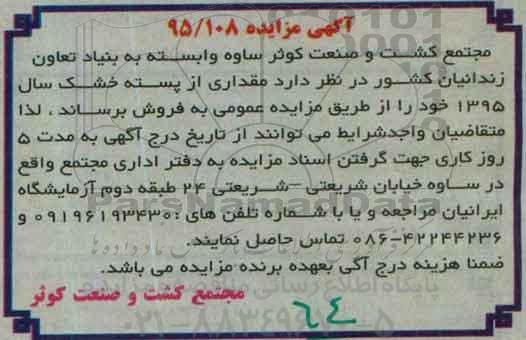 آگهی مزایده ۹۵/۱۰۸
مجتمع کشت و صنعت کوثر ساوه وابسته به بنیاد تعاون
زندانیان کشور در نظر دارد مقداری از پسته خشک سال
۱۳۹۵ خود را از طریق مزایده عمومی به فروش برساند ، لذا
متقاضیان واجدشرایط می توانند از تاریخ درج آگهی به مدت ۵
روز کاری جهت گرفتن اسناد مزایده به دفتر اداری مجتمع واقع
در ساوه خیابان شریعتی –شریعتی ۲۴ طبقه دوم آزمایشگاه
ایرانیان مراجعه و یا با شماره تلفن های :۰۹۱۹۶۱۹۳۴۳۰ و
۰۸۶-۴۲۲۴۴۲۳۶ تماس حاصل نمایند.
ضمنا هزینه درج آگی بعهده برنده مزایده می باشد.
مجتمع کشت و صنعت کوثر
٦٤
ParsNamadData
پایگاه اطلاع رسانی